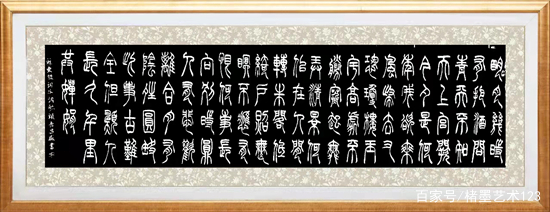 明月幾時
有把酒問
青天不知
天上宮闕
今夕是何
年我欲乘
風歸去又
恐瓊樓玉
宇高處不
勝寒起舞
弄清影何
似在人間
轉朱閣低
綺戶照無
眠不應有
恨何事長
向別時圓
人有悲歡
離合月有
陰晴圓缺
此事古難
全但願人
長久千里
共嬋娟
百家号/楮墨艺术123